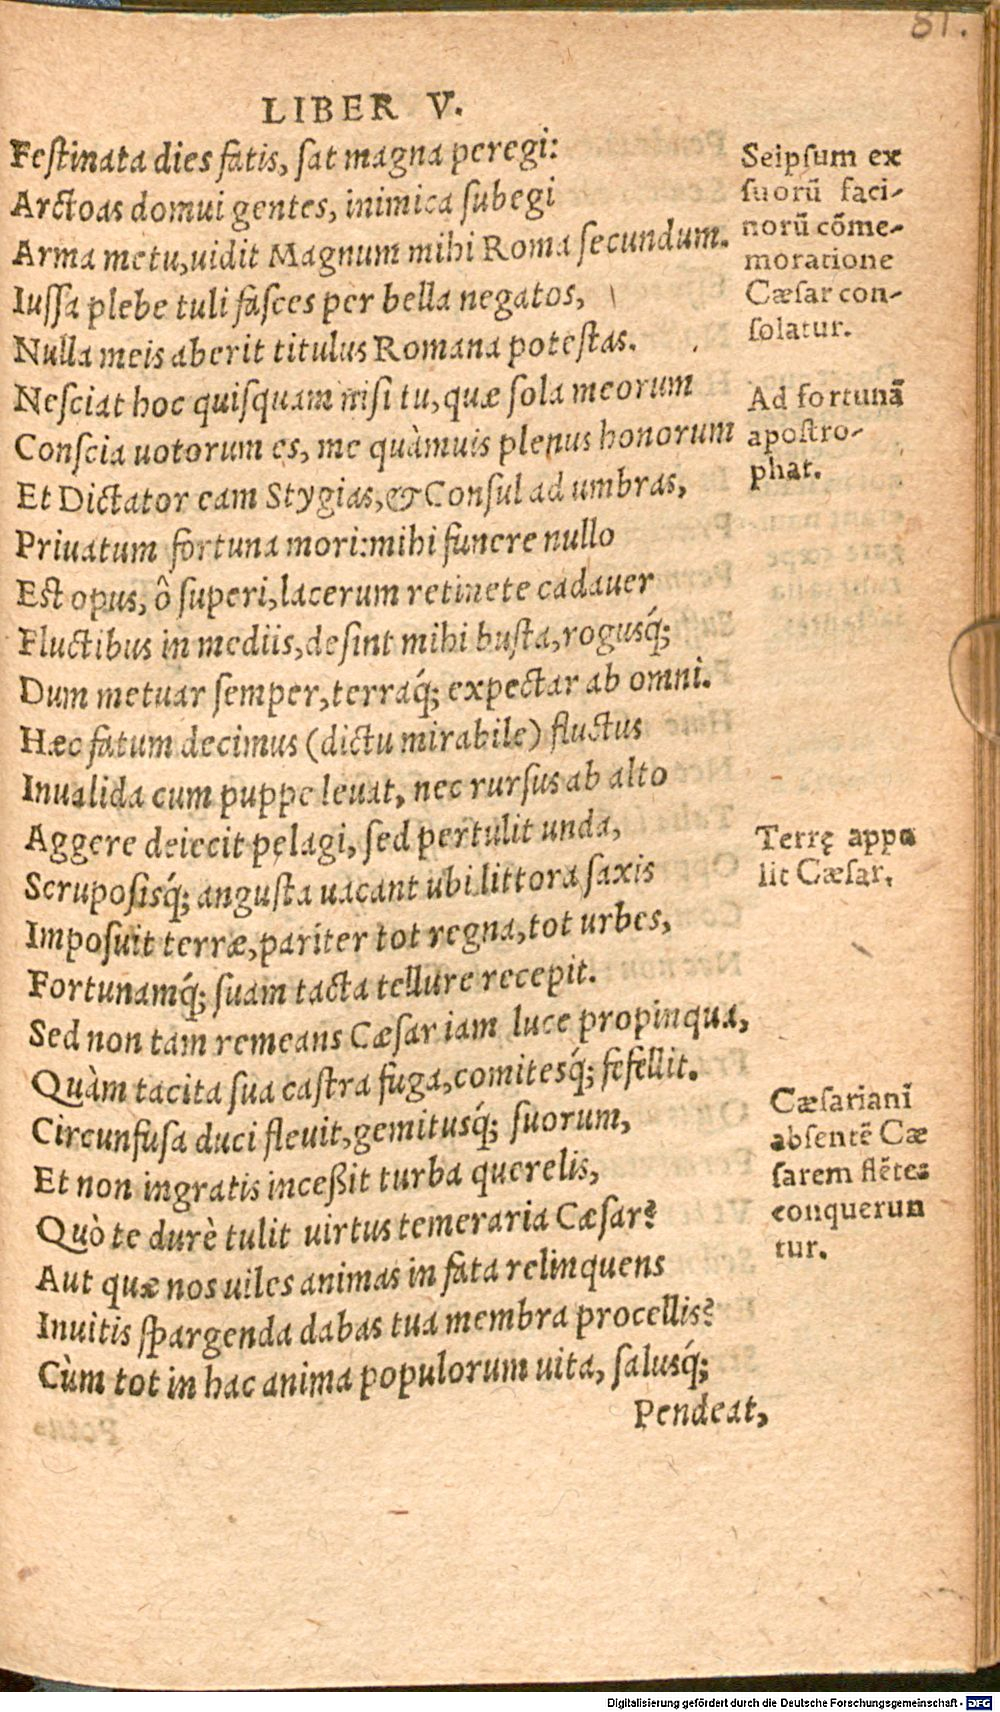 81.
LIBER V.
Festinata dies fatis, sat magna peregi:
Arctoas domui gentes, inimica subegi
Arma metu, uidit Magnum mihi Roma secundum.
Iussa plebe tuli fasces per bella negatos,
Nulla meis aberit titulus Romana potestas.
Nesciat hoc quisquam nisi tu, quæ sola meorum
Conscia uotorum es, me quàmuis plenus honorum
Et Dictator eam Stygias, & Consul ad umbras,
Priuatum fortuna mori: mihi funere nullo
Est opus, ô superi, lacerum retinete cadauer
Fluctibus in mediis, desint mihi busta, rogusq́;
Dum metuar semper, terraq́; expectar ab omni.
Hæc fatum decimus (dictu mirabile) fluctus
Inualida cum puppe leuat, nec rursus ab alto
Aggere deiecit pęlagi, sed pertulit unda,
Scruposisq́; angusta uacant ubi littora saxis
Imposuit terræ, pariter tot regna, tot urbes,
Fortunamq́; suam tacta tellure recepit.
Sed non tam remeans Cæsar iam luce propinqua,
Quàm tacita sua castra fuga, comitesq́; fefellit.
Circunfusa duci fleuit, gemitusq́; suorum,
Et non ingratis inceßit turba querelis,
Quò te durè tulit uirtus temeraria Cæsar?
Aut quæ nos uiles animas in fata relinquens
Inuitis spargenda dabas tua membra procellis?
Cùm tot in hac anima populorum uita, salusq́;
Pendeat,
Seipsum ex
suorũ faci-
norũ cõme-
moratione
Cæsar con-
solatur.
Ad fortunã
apostro-
phat.
Terrę appu
lit Cæsar.
Cæsariani
absentẽ Cæ
sarem flẽtes
conquerun
tur.
Digitalisierung gefördert durch die Deutsche Forschungsgemeinschaft - DFG